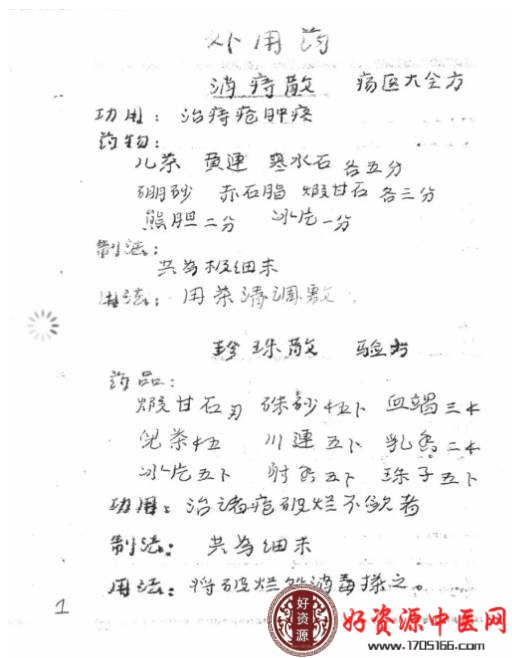 外用药
消痔散 疡医大全方
功用：治痔疮肿疼
药物：
儿茶 黄連 寒水石 各五分
硼砂 赤石脂 煅甘石 各三分
熊胆二分 冰片一分
制法：
共为极细末
用法：用茶清调敷
珍珠散 验方
药品：
煅甘石 硃砂 血竭三
儿茶 川連五卜 乳香二
冰片五卜 射香五卜 珠子五卜
功用：治诸疮破烂不歛者
制法：共為细末
用法：将破烂处消毒搽之。
1
好资源
好资源中医网
www.1705166.com